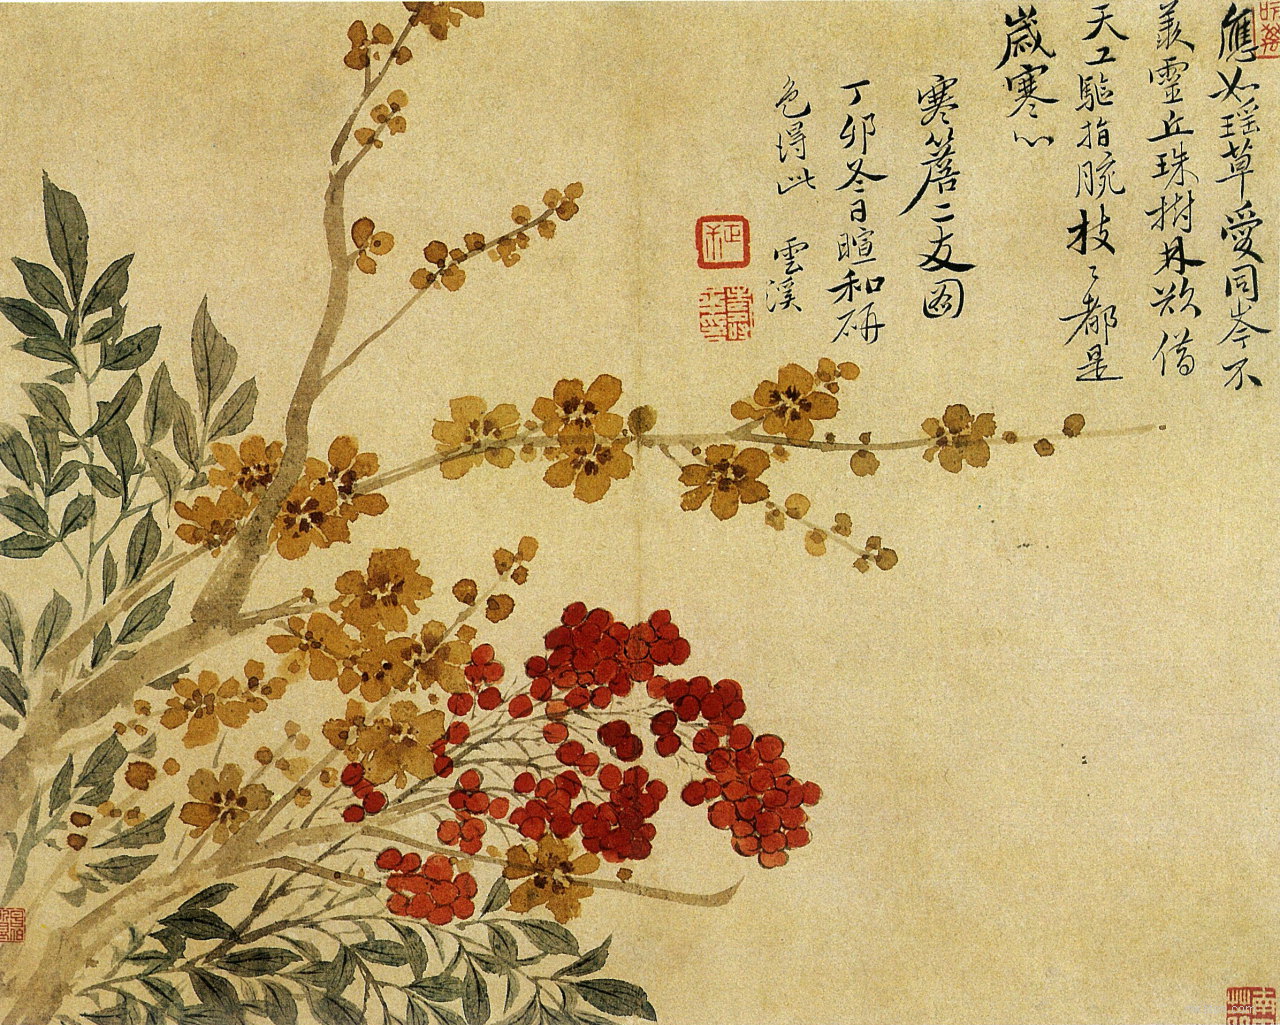 應如瑤草愛同岑不
羨靈丘珠樹林欲借
天工驅指腕枝〻都是
歲寒心
寒簷二友図
丁卯冬日暄和研
色得此 雲溪
正叔